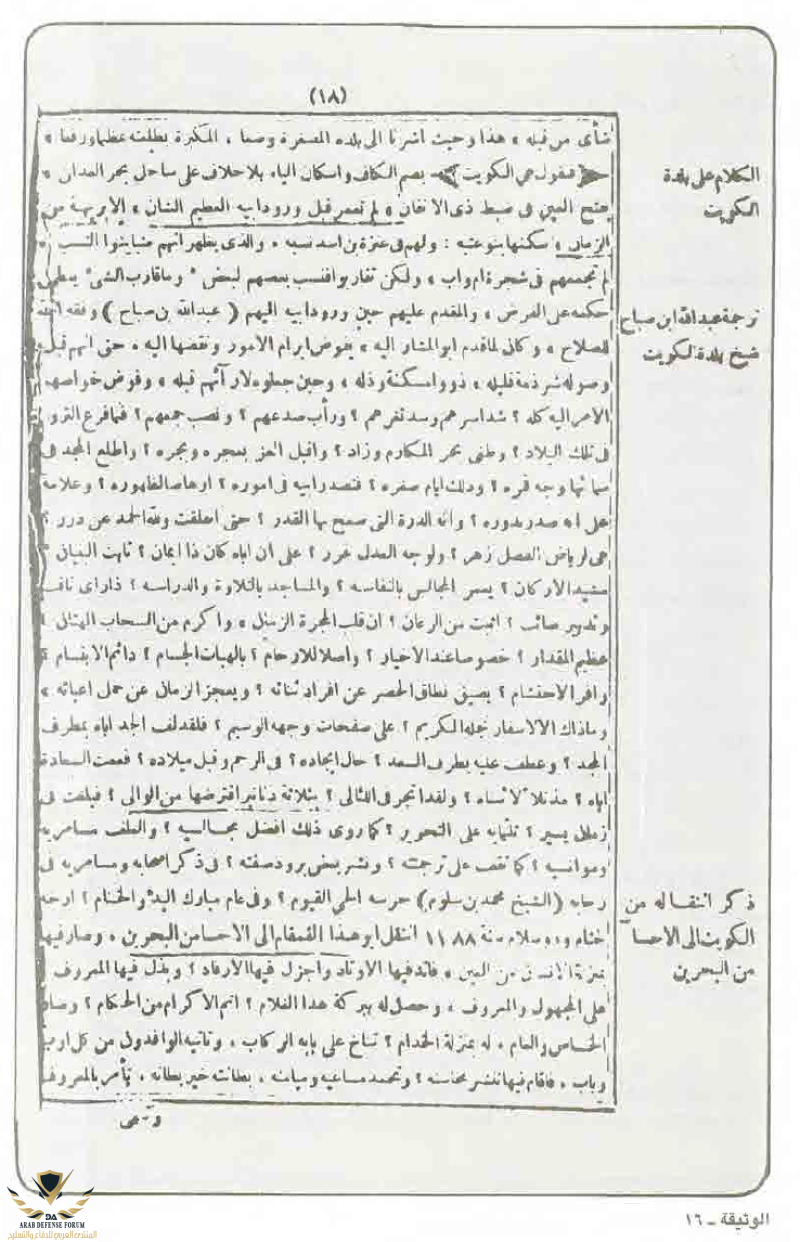 (١٨)
نشأى من قبله ، هذا وحيث اشرنا الى بلده المصغرة وضعا ، المكبرة بطلعته عظما ورفعا ،
فنقول هى الكويت بضم الكاف واسكان الياء بلا خلاف على ساحل بحر العدان ،
بفتح العين فى ضبط ذى الاتقان ، لم تعمر قبل ورود ابيه العظيم الشان ، الا بريهة من
الزمان ، سكنها بنو عتبه : ولهم فى عنزة بن اسد نسبه ، والذى يظهر انهم متباينوا النسب ،
لم تجمعهم فى شجرة ام واب ، ولكن تقاربوا فنسب بعضهم لبعض ، وما قارب الشئ يعطى
حكمه على الفرض ، والمقدم عليهم حين ورود ابيه اليهم ( عبدالله بن صباح ) وفقه الله
للصلاح ، وكان لما قدم ابو المشار اليه ، يفوض ابرام الامور ونقضها اليه ، حتى انهم قبل
وصوله شرذمة قليله ، ذووا مسكنة وذله ، وحين جعلوه لارائهم قبله ، وفوض خواصهم
الامر اليه كله ؟ شد اسرهم وسد ثغرهم ؟ ورأب صدعهم ؟ ونصب جمعهم ؟
فى تلك البلاد ؟ وطمى بحر المكارم وزاد ؟ واقبل العز بعجره وبجره ؟ واطلع المجد فى
سمائها وجه قمره ؟ وذلك ايام صغره ؟ فتصدر ابيه فى اموره ؟ ارهاصا لظهوره ؟ وعلامة
على انه صدر بدوره ؟ وانه الدرة التى سمح بها القدر ؟ حتى اغلقت ولله الحمد عن درر ؟
هى لرياض الفضل زهر ؟ ولوجه العدل غرر ؟ على ان اباه كان ذا ايمان ؟ ثابت البنيان ؟
مشيد الاركان ؟ يسر المجالس بالنفاسه ؟ والمساجد بالتلاوة والدراسه ؟ ذا راى ثاقب
وتدبير صائب ؟ اثبت من الرعان ؟ ان قلب المجرة الزمان ، واكرم من السحاب الهتان ؟
عظيم المقدار ؟ خصوصا عند الاخيار ؟ واصلا للارحام ؟ بالهبات الجسام ؟ دائم الابتسام ؟
وافر الاحتشام ؟ يضيق نطاق الحصر عن افراد ثنائه ؟ ويعجز الزمان عن حمل اعبائه ،
وما ذاك الا لاسفار نجله الكريم ؟ على صفحات وجهه الوسيم ؟ فلقد لف الجد اباه بمطرف
المجد ؟ وعطف عليه بطرف السعد ؟ حال ايجاده ؟ فى الرحم وقبل ميلاده ؟ فعمت السعادة
اباه ؟ مذ تلألأ سناه ؟ ولقد اتجر فى اللئالى ؟ بثلاثة دنانير اقترضها من الوالى ؟ فبلغت فى
زمان يسير ؟ على التحرير ؟ كما روى ذلك افضل مجالسيه ؟ والطف مسامريه
وموانسيه ؟ كما تقف على ترجمته ؟ ونشر بعض برود صفته ؟ فى ذكر اصحابه ومسامريه فى
رحابه (الشيخ محمد بن سلوم) حرسه الحى القيوم ؟ وفى عام مبارك البدؤ والختام ؟ ارخه
ختام سلام سنة ١١٨٨ انتقل ابو هذا القمقام الى الاحسا من البحرين ، وصار فيها
بمنزلة الانسان من العين ، فاتد فيها الاوتاد واجزل فيها الارفاد ؟ وبذل فيها المعروف
على المجهول والمعروف ، وحصل له ببركة هذا الغلام ؟ اتم الاكرام من الحكام ؟ وصار
الخاص والعام ، له بمنزلة الخدام ؟ تناخ على بابه الركاب ، وتاتيه الوافدون من كل ارب
وباب ، فاقام فيها تنشر محاسنه ؟ وتحمد مساعيه وميامنه ، بطانته خير بطانه ، تأمر بالمعروف
الكلام على بلدة
الكويت
ترجمة عبدالله ابن صباح
شيخ بلدة الكويت
ذكر انتقاله من
الكويت الى الاحسا
من البحرين
الوثيقة - ١٦
ARAB DEFENSE FORUM
المنتدى العربي للدفاع والتسليح